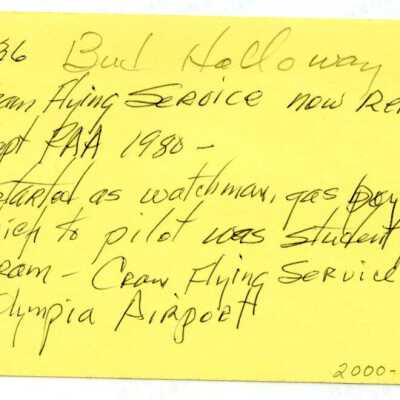 36 Bud Holloway
ram Flying Service now Re
apt PAA 1980 -
started as watchman, gas boy
to pilot was student
ram - Cram Flying Service
lympia Airport
2000-